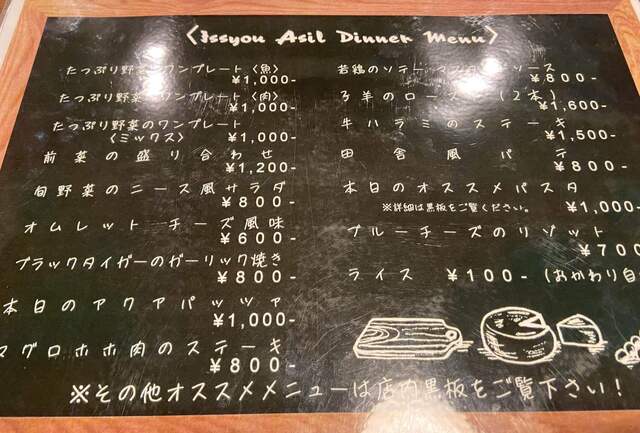 〈Issyou Asil Dinner Menu〉
たっぷり野菜のワンプレート〈魚〉
¥1,000-
たっぷり野菜のワンプレート〈肉〉
¥1,000-
たっぷり野菜のワンプレート
〈ミックス〉 ¥1,000-
前菜の盛り合わせ
¥1,200-
旬野菜のニース風サラダ
¥800-
オムレット チーズ風味
¥600-
ブラックタイガーのガーリック焼き
¥800-
本日のアクアパッツァ
¥1,000-
マグロホホ肉のステーキ
¥800-
若鶏のソテー ソース
¥800-
子羊のロース (2本)
¥1,600-
牛ハラミのステーキ
¥1,500-
田舎風パテ
¥800-
本日のオススメパスタ
※詳細は黒板をご覧ください。 ¥1,000-
ブルーチーズのリゾット
¥700
ライス ¥100- (おかわり自
※その他オススメメニューは店内黒板をご覧下さい!